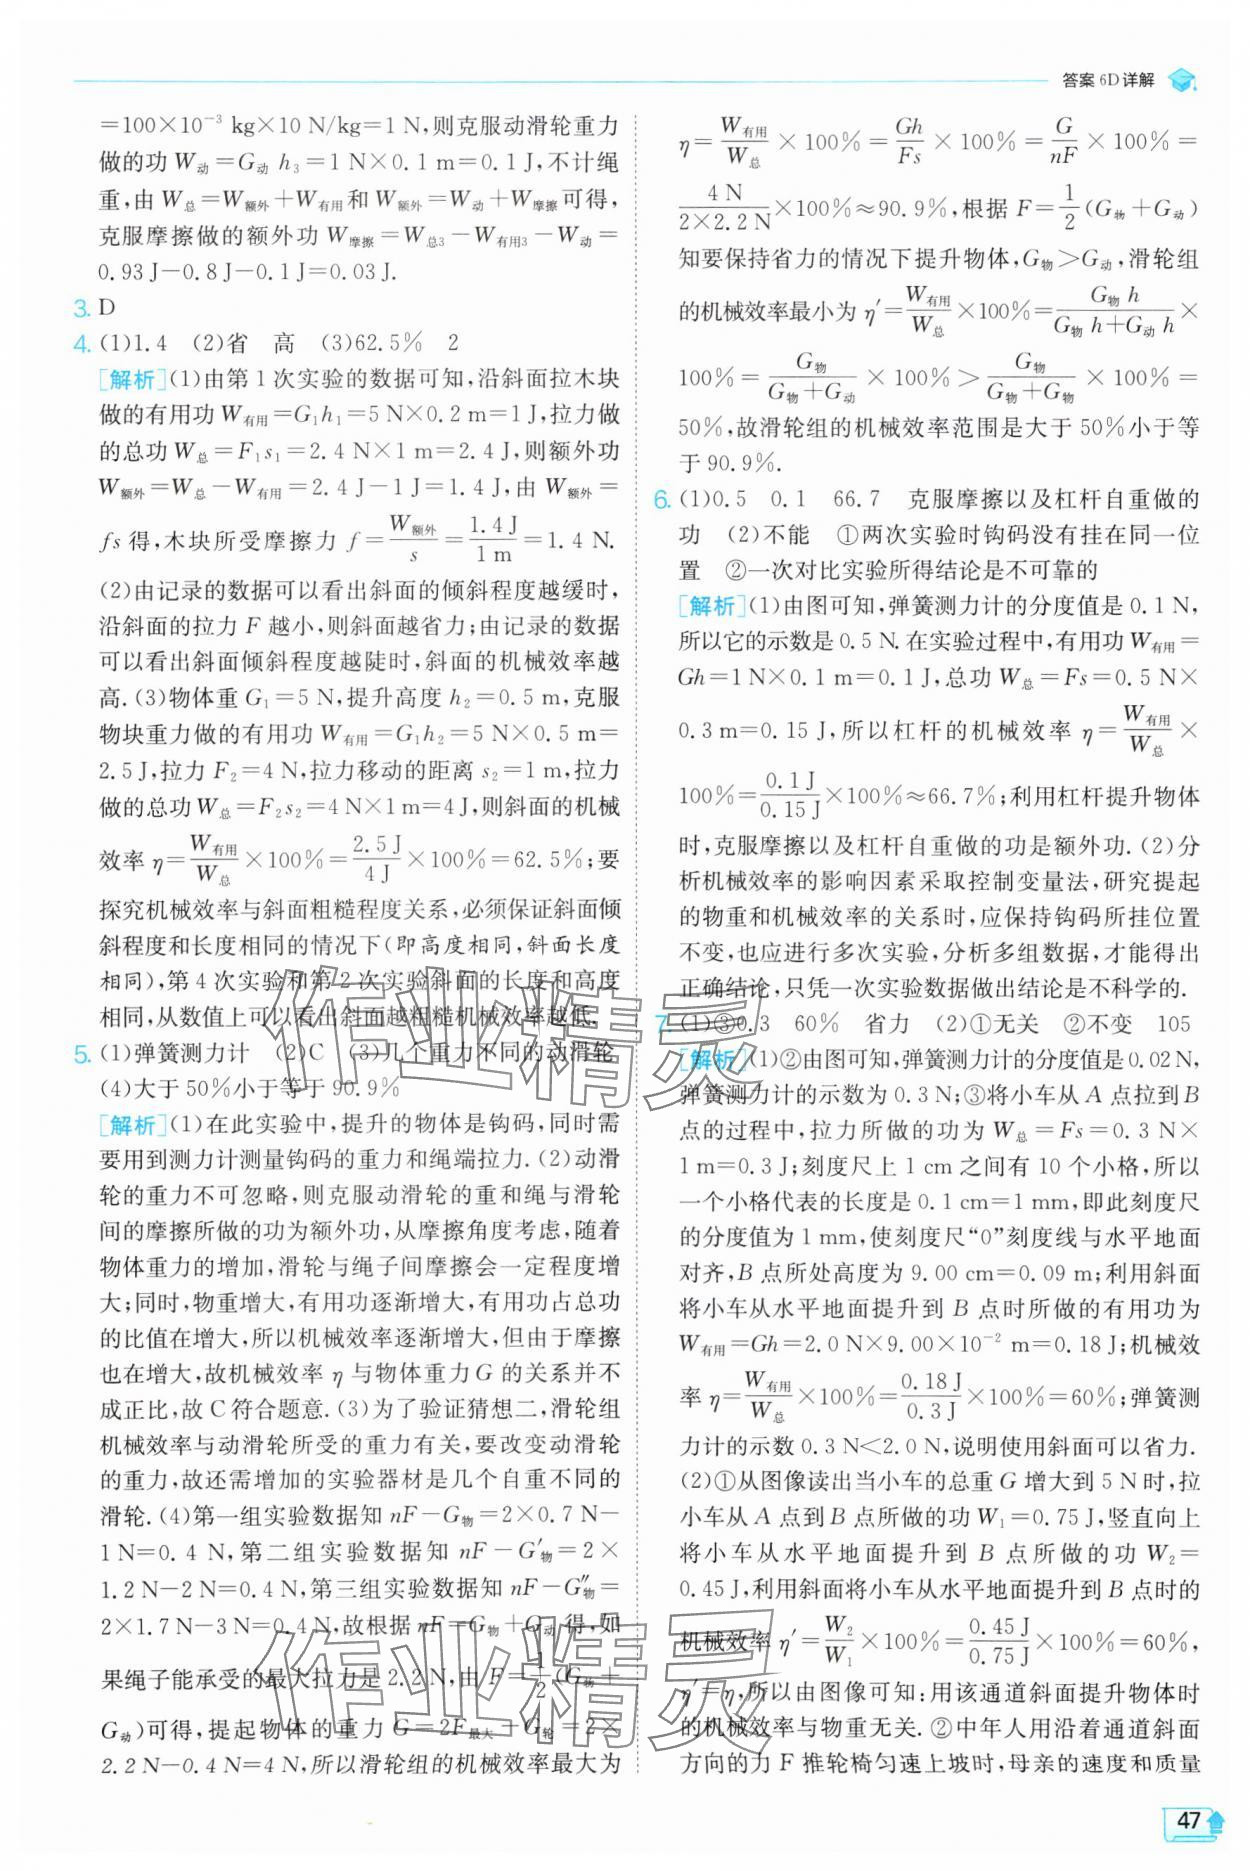 答案 6D 详解
=100×10⁻³ kg×10 N/kg=1 N,则克服动滑轮重力
做的功 W动=G动 h₃=1 N×0.1 m=0.1 J,不计绳
重,由 W总=W额外+W有用和 W额外=W动+W摩擦可得,
克服摩擦做的额外功 W摩擦=W总3-W有用3-W动=
0.93 J-0.8 J-0.1 J=0.03 J.
3. D
4. (1)1.4 (2)省 高 (3)62.5% 2
[解析](1)由第 1 次实验的数据可知,沿斜面拉木块
做的有用功 W有用=G₁h₁=5 N×0.2 m=1 J,拉力做
的总功 W总=F₁s₁=2.4 N×1 m=2.4 J,则额外功
W额外=W总-W有用=2.4 J-1 J=1.4 J,由 W额外=
fs 得,木块所受摩擦力 f=W额外/s=1.4 J/1 m=1.4 N.
(2)由记录的数据可以看出斜面的倾斜程度越缓时,
沿斜面的拉力 F 越小,则斜面越省力;由记录的数据
可以看出斜面倾斜程度越陡时,斜面的机械效率越
高.(3)物体重 G₁=5 N,提升高度 h₂=0.5 m,克服
物块重力做的有用功 W有用=G₁h₂=5 N×0.5 m=
2.5 J,拉力 F₂=4 N,拉力移动的距离 s₂=1 m,拉力
做的总功 W总=F₂s₂=4 N×1 m=4 J,则斜面的机械
效率 η=W有用/W总×100%=2.5 J/4 J×100%=62.5%;要
探究机械效率与斜面粗糙程度关系,必须保证斜面倾
斜程度和长度相同的情况下(即高度相同,斜面长度
相同),第 4 次实验和第 2 次实验斜面的长度和高度
相同,从数值上可以看出斜面越粗糙机械效率越低.
5. (1)弹簧测力计 (2)C (3)几个重力不同的动滑轮
(4)大于 50%小于等于 90.9%
[解析](1)在此实验中,提升的物体是钩码,同时需
要用到测力计测量钩码的重力和绳端拉力.(2)动滑
轮的重力不可忽略,则克服动滑轮的重和绳与滑轮
间的摩擦所做的功为额外功,从摩擦角度考虑,随着
物体重力的增加,滑轮与绳子间摩擦会一定程度增
大;同时,物重增大,有用功逐渐增大,有用功占总功
的比值在增大,所以机械效率逐渐增大,但由于摩擦
也在增大,故机械效率 η 与物体重力 G 的关系并不
成正比,故 C 符合题意.(3)为了验证猜想二,滑轮组
机械效率与动滑轮所受的重力有关,要改变动滑轮
的重力,故还需增加的实验器材是几个自重不同的
滑轮.(4)第一组实验数据知 nF-G物=2×0.7 N-
1 N=0.4 N,第二组实验数据知 nF-G′物=2×
1.2 N-2 N=0.4 N,第三组实验数据知 nF-G″物=
2×1.7 N-3 N=0.4 N,故根据 nF=G物+G动得,如
果绳子能承受的最大拉力是 2.2 N,由 F=1/2(G物+
G动)可得,提起物体的重力 G=2F最大+G轮=2×
2.2 N-0.4 N=4 N,所以滑轮组的机械效率最大为
η=W有用/W总×100%=Gh/Fs×100%=G/nF×100%=
4 N/(2×2.2 N)×100%≈90.9%,根据 F=1/2(G物+G动)
知要保持省力的情况下提升物体,G物>G动,滑轮组
的机械效率最小为 η′=W有用/W总×100%=G物 h/(G物 h+G动 h)×
100%=G物/(G物+G动)×100%>G物/(G物+G物)×100%=
50%,故滑轮组的机械效率范围是大于 50%小于等
于 90.9%.
6. (1)0.5 0.1 66.7 克服摩擦以及杠杆自重做的
功 (2)不能 ①两次实验时钩码没有挂在同一位
置 ②一次对比实验所得结论是不可靠的
[解析](1)由图可知,弹簧测力计的分度值是 0.1 N,
所以它的示数是 0.5 N.在实验过程中,有用功 W有用=
Gh=1 N×0.1 m=0.1 J,总功 W总=Fs=0.5 N×
0.3 m=0.15 J,所以杠杆的机械效率 η=W有用/W总×
100%=0.1 J/0.15 J×100%≈66.7%;利用杠杆提升物体
时,克服摩擦以及杠杆自重做的功是额外功.(2)分
析机械效率的影响因素采取控制变量法,研究提起
的物重和机械效率的关系时,应保持钩码所挂位置
不变,也应进行多次实验,分析多组数据,才能得出
正确结论,只凭一次实验数据做出结论是不科学的.
7. (1)③0.3 60% 省力 (2)①无关 ②不变 105
[解析](1)②由图可知,弹簧测力计的分度值是 0.02 N,
弹簧测力计的示数为 0.3 N;③将小车从 A 点拉到 B
点的过程中,拉力所做的功为 W总=Fs=0.3 N×
1 m=0.3 J;刻度尺上 1 cm 之间有 10 个小格,所以
一个小格代表的长度是 0.1 cm=1 mm,即此刻度尺
的分度值为 1 mm,使刻度尺“0”刻度线与水平地面
对齐,B 点所处高度为 9.00 cm=0.09 m;利用斜面
将小车从水平地面提升到 B 点时所做的有用功为
W有用=Gh=2.0 N×9.00×10⁻² m=0.18 J;机械效
率 η=W有用/W总×100%=0.18 J/0.3 J×100%=60%;弹簧测
力计的示数 0.3 N<2.0 N,说明使用斜面可以省力.
(2)①从图像读出当小车的总重 G 增大到 5 N 时,拉
小车从 A 点到 B 点所做的功 W₁=0.75 J,竖直向上
将小车从水平地面提升到 B 点所做的功 W₂=
0.45 J,利用斜面将小车从水平地面提升到 B 点时的
机械效率 η′=W₂/W₁×100%=0.45 J/0.75 J×100%=60%,
η′=η,所以由图像可知:用该通道斜面提升物体时
的机械效率与物重无关.②中年人用沿着通道斜面
方向的力 F 推轮椅匀速上坡时,母亲的速度和质量
作业精灵
作业精灵
47